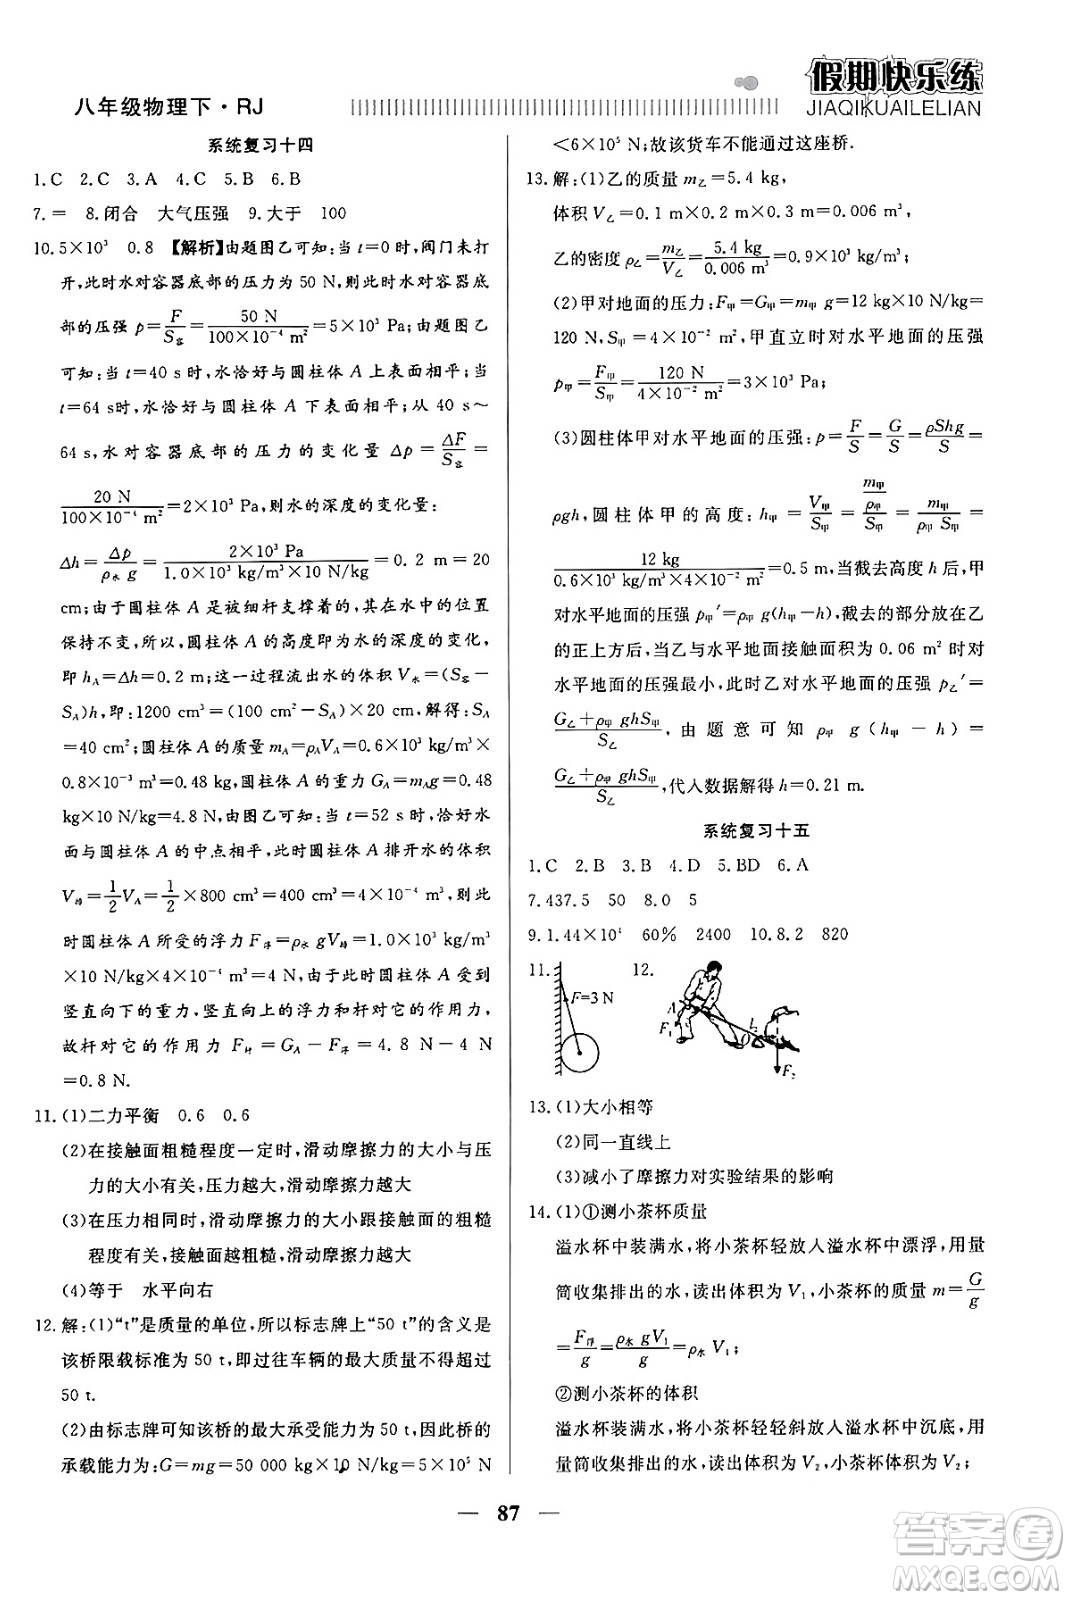 八年级物理下·RJ
假期快乐练
JIAQIKUAILELIAN
系统复习十四
1.C 2.C 3.A 4.C 5.B 6.B
7.= 8.闭合 大气压强 9.大于 100
10.5×10³ 0.8 【解析】由题图乙可知:当 t=0时,阀门未打
开,此时水对容器底部的压力为 50 N,此时水对容器底
部的压强 p=F/S容=50 N/(100×10⁻⁴ m²)=5×10³ Pa;由题图乙
可知:当 t=40 s时,水恰好与圆柱体 A 上表面相平;当
t=64 s时,水恰好与圆柱体 A 下表面相平;从 40 s～
64 s,水对容器底部的压力的变化量 Δp=ΔF/S容=
20 N/(100×10⁻⁴ m²)=2×10³ Pa,则水的深度的变化量:
Δh=Δp/(ρ水 g)=2×10³ Pa/(1.0×10³ kg/m³×10 N/kg)=0.2 m=20
cm;由于圆柱体 A 是被细杆支撑着的,其在水中的位置
保持不变,所以,圆柱体 A 的高度即为水的深度的变化,
即:hA=Δh=0.2 m;这一过程流出水的体积 V水=(S容-
SA)h,即:1200 cm³=(100 cm²-SA)×20 cm,解得:SA
=40 cm²;圆柱体 A 的质量 mA=ρAVA=0.6×10³ kg/m³×
0.8×10⁻³ m³=0.48 kg,圆柱体 A 的重力 GA=mAg=0.48
kg×10 N/kg=4.8 N,由图乙可知:当 t=52 s时,恰好水
面与圆柱体 A 的中点相平,此时圆柱体 A 排开水的体积
V排=1/2VA=1/2×800 cm³=400 cm³=4×10⁻⁴ m³,此
时圆柱体 A 所受的浮力 F浮=ρ水 gV排=1.0×10³ kg/m³
×10 N/kg×4×10⁻⁴ m³=4 N,由于此时圆柱体 A 受到
竖直向下的重力,竖直向上的浮力和杆对它的作用力,
故杆对它的作用力 F杆=GA-F浮=4.8 N-4 N
=0.8 N.
11.(1)二力平衡 0.6 0.6
(2)在接触面粗糙程度一定时,滑动摩擦力的大小与压
力的大小有关,压力越大,滑动摩擦力越大
(3)在压力相同时,滑动摩擦力的大小跟接触面的粗糙
程度有关,接触面越粗糙,滑动摩擦力越大
(4)等于 水平向右
12.解:(1)“t”是质量的单位,所以标志牌上“50 t”的含义是
该桥限载标准为 50 t,即过往车辆的最大质量不得超过
50 t.
(2)由标志牌可知该桥的最大承受能力为 50 t,因此桥的
承载能力为:G=mg=50 000 kg×10 N/kg=5×10⁵ N
<6×10⁵ N;故该货车不能通过这座桥.
13.解:(1)乙的质量 m乙=5.4 kg,
体积 V乙=0.1 m×0.2 m×0.3 m=0.006 m³,
乙的密度 ρ乙=m乙/V乙=5.4 kg/0.006 m³=0.9×10³ kg/m³;
(2)甲对地面的压力:F甲=G甲=m甲 g=12 kg×10 N/kg=
120 N,S甲=4×10⁻² m²,甲直立时对水平地面的压强
p甲=F甲/S甲=120 N/(4×10⁻² m²)=3×10³ Pa;
(3)圆柱体甲对水平地面的压强:p=F/S=G/S=ρShg/S=
ρgh,圆柱体甲的高度:h甲=V甲/S甲=(m甲/ρ甲)/S甲=m甲/(ρ甲S甲)=
12 kg/(0.6×10³ kg/m³×4×10⁻² m²)=0.5 m,当截去高度 h 后,甲
对水平地面的压强 p甲′=ρ甲 g(h甲-h),截去的部分放在乙
的正上方后,当乙与水平地面接触面积为 0.06 m² 时对
水平地面的压强最小,此时乙对水平地面的压强 p乙′=
(G乙+ρ甲 ghS甲)/S乙,由题意可知 ρ甲 g(h甲-h)=
(G乙+ρ甲 ghS甲)/S乙,代入数据解得 h=0.21 m.
系统复习十五
1.C 2.B 3.B 4.D 5.BD 6.A
7.437.5 50 8.0 5
9.1.44×10⁴ 60% 2400 10.8.2 820
11. F=3 N 12. A F₁ l₂ F₂
13.(1)大小相等
(2)同一直线上
(3)减小了摩擦力对实验结果的影响
14.(1)①测小茶杯质量
溢水杯中装满水,将小茶杯轻放入溢水杯中漂浮,用量
筒收集排出的水,读出体积为 V₁,小茶杯的质量 m=G/g
=F浮/g=ρ水 gV₁/g=ρ水 V₁;
②测小茶杯的体积
溢水杯装满水,将小茶杯轻轻斜放入溢水杯中沉底,用
量筒收集排出的水,读出体积为 V₂,小茶杯体积为 V₂;
87
答案圈
MXQE.COM